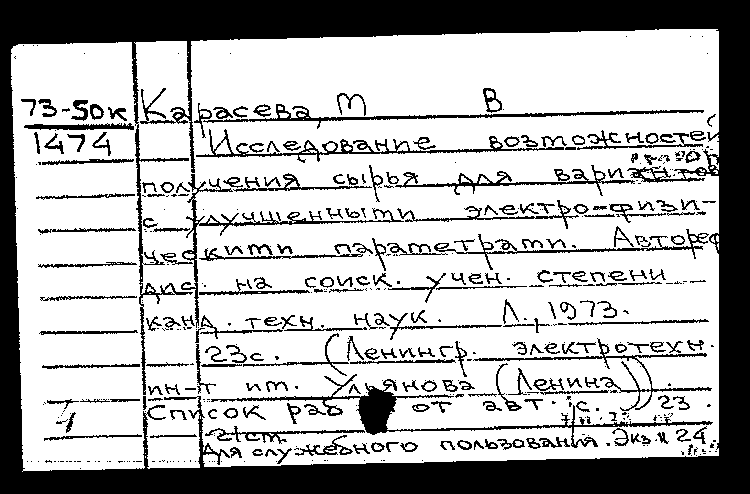 73-50к Карасева, М В
1474 Исследование возможностей
получения сырья для
с улучшенными электро-физи-
ческими параметрами. Автореф
дис. на соиск. учен. степени
канд. техн. наук. Л., 1973.
23с. (Ленингр. электротехн.
ин-т им. Ульянова (Ленина)).
4 Список раб от авт. с. 23.
Для служебного пользования. Экз. N 24.